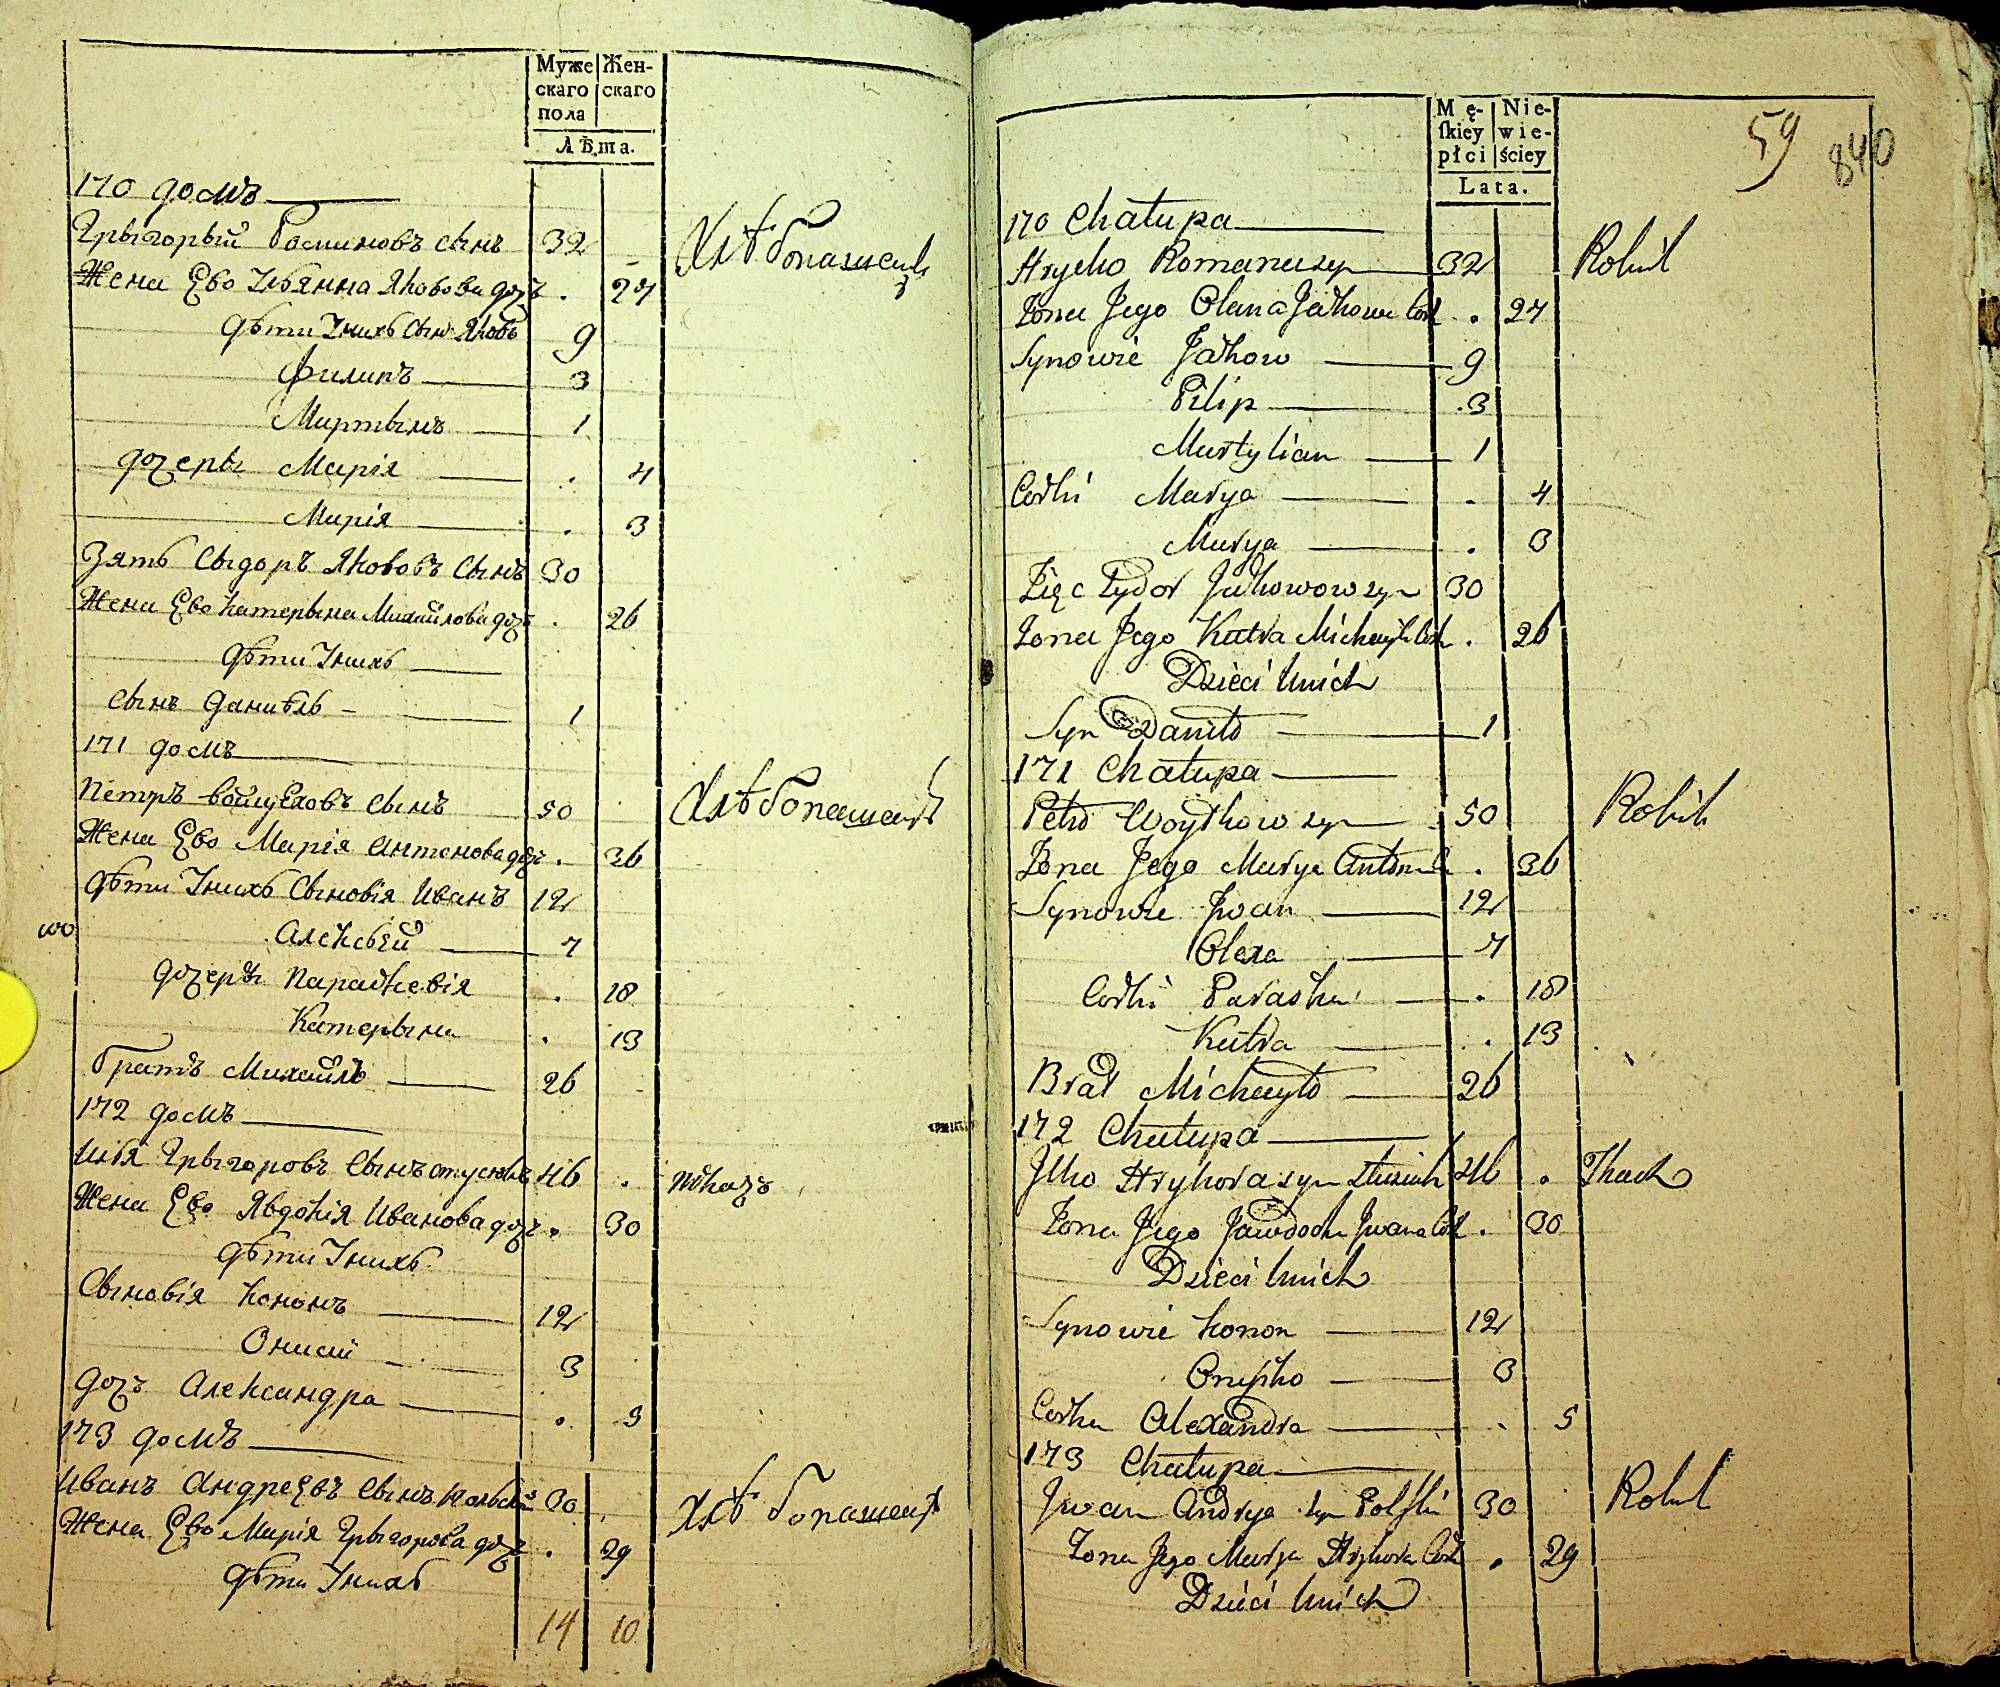 Муже Жен-
скаго скаго
пола
Лѣта.
170 домъ
Грыгорый Романовъ сынъ 32 Хлѣбопашецъ
Жена Ево Ульянна Яковова дочь . 27
дѣти Унихъ сын Яковъ 9
Филипъ 3
Мартынъ 1
дочеры Марія . 4
Марія . 3
Зять Сыдоръ Якововъ сынъ 30
Жена Ево Катерына Михайлова дочь . 26
дѣти Унихъ
сынъ Даниѣль 1
171 домъ
Петръ Войцѣховъ сынъ 50 Хлѣбопашецъ
Жена Ево Марія Антонова дочь . 36
дѣти Унихъ Сыновія Иванъ 12
Алексѣй 7
дочеры Параскевія . 18
Катерына . 13
братъ Михайлъ 26
172 домъ
Илія Грыгоровъ Сынъ 46 . ткачъ
Жена Ево Явдокія Иванова дочь . 30
дѣти Унихъ
Сыновія Кононъ 12
Онисий 3
дочъ Александра . 5
173 домъ
Иванъ Андреѣвъ сынъ Польский 30 хлѣбопашецъ
Жена Ево Марія Грыгорова дочь . 29
дѣти Унихъ
14 10
59 840
Mę- Nie-
ſkiey wie-
płci ściey
Lata.
170 Chałupa
Hryćko Romana syn 32 Robić
Zona Jego Olana Jaćkowa Cor . 27
Synowie Jaćkow 9
Pilip .3
Martylian 1
Corki Marya . 4
Marya . 3
Zięc Sydor Jaćkowow syn 30
Zona Jego Katra Michayła Cor . 26
Dzieci Unich
Syn Daniło 1
171 Chałupa
Petro Woytkow syn 50 Robić
Zona Jego Marya Antona C . 36
Synowie Jwan 12
Olexa 7
Corki Paraska . 18
Katra . 13
Brat Michayło 26
172 Chałupa
Jlko Hryhora syn 46 . Tkacz
Zona Jego Jawdocha Jwana Cor . 30
Dzieci Unich
Synowie Konon 12
Onysko 3
Corka Alexandra . 5
173 Chałupa
Jwan Andryja syn Polſki 30 Robić
Zona Jego Marya Hryhora Cor . 29
Dzieci Unich